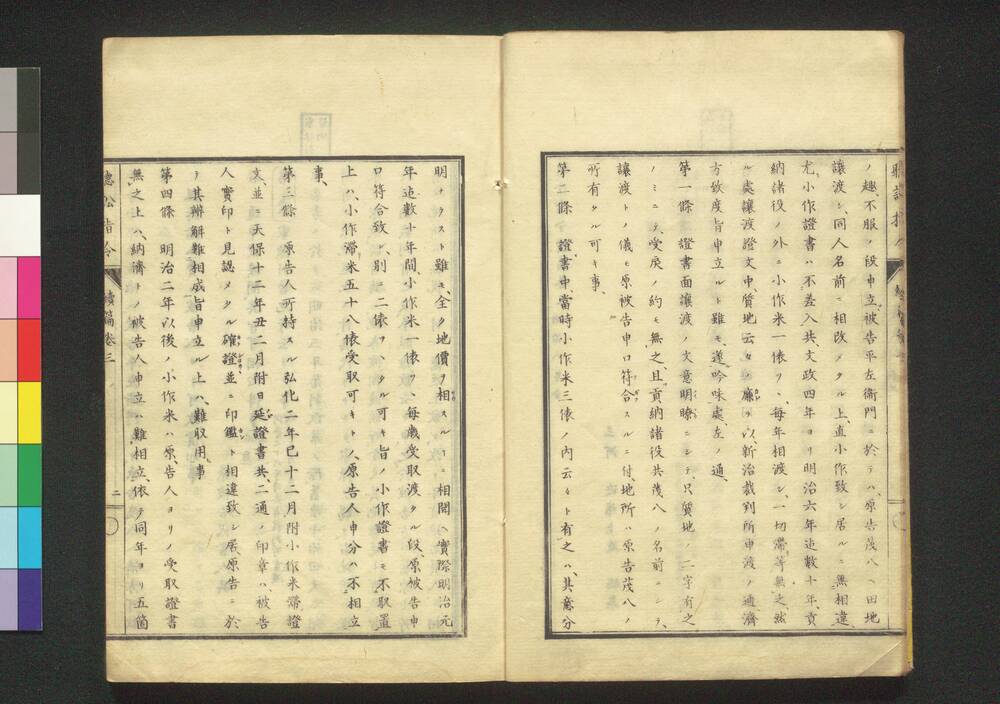 ノ趣、不服ノ段申立、被告平左衞門ニ於テハ、原告茂八ヘ田地
讓渡シ、同人名前ニ相改メタル上、直小作致シ居ルニ無相違、
尤、小作證書ハ不差入共、文政四年ヨリ明治六年迠數十年、貢
納諸役ノ外ニ小作米一俵ツヽ、毎年相渡シ、一切滯等無之、然
ル處讓渡證文中、質地云々ノ廉ヲ以、新治裁判所申渡ノ通濟
方致度旨申立ルト雖モ、遂吟味處、左ノ通、
第一條 證書面讓渡ノ文意明瞭ニシテ、只質地ノ二字有之
ノミニテ、受戻ノ約モ無之、且貢納諸役共茂八ノ名前ニシテ、
讓渡トノ儀モ原被告申口符合スルニ付、地所ハ原告茂八ノ
所有タル可キ事、
第二條 證書中、當時小作米三俵ノ内云々ト有之ハ、其意分
明ナラスト雖モ、全ク地價ヲ相スルーニ相聞ヘ、實際明治元
年迠數十年間、小作米一俵ツヽ毎歳受取渡タル段、原被告申
口符合致シ、別ニ二俵ツヽタル可キ旨ノ小作證書モ不取置
上ハ、小作滯米五十八俵受取可キトノ原告人申分ハ不相立
事、
第三條 原告人所持スル弘化二年巳十二月附小作米滯證
文、並ニ天保十二年丑二月附日延證書共、二通ノ印章ハ、被告
人實印ト見認メタル確證並ニ印鑑ト相違致シ居、原告ニ於
テ其辨解難相成旨申立ル上ハ、難取用事
第四條 明治二年以後ノ小作米ハ原告人ヨリノ受取證書
無之上ハ、納濟トノ被告人申立ハ難相立、依テ同年ヨリ五箇
聽訟指令 續篇卷三 二